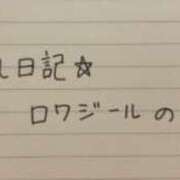 ル日記☆
ロワジールの